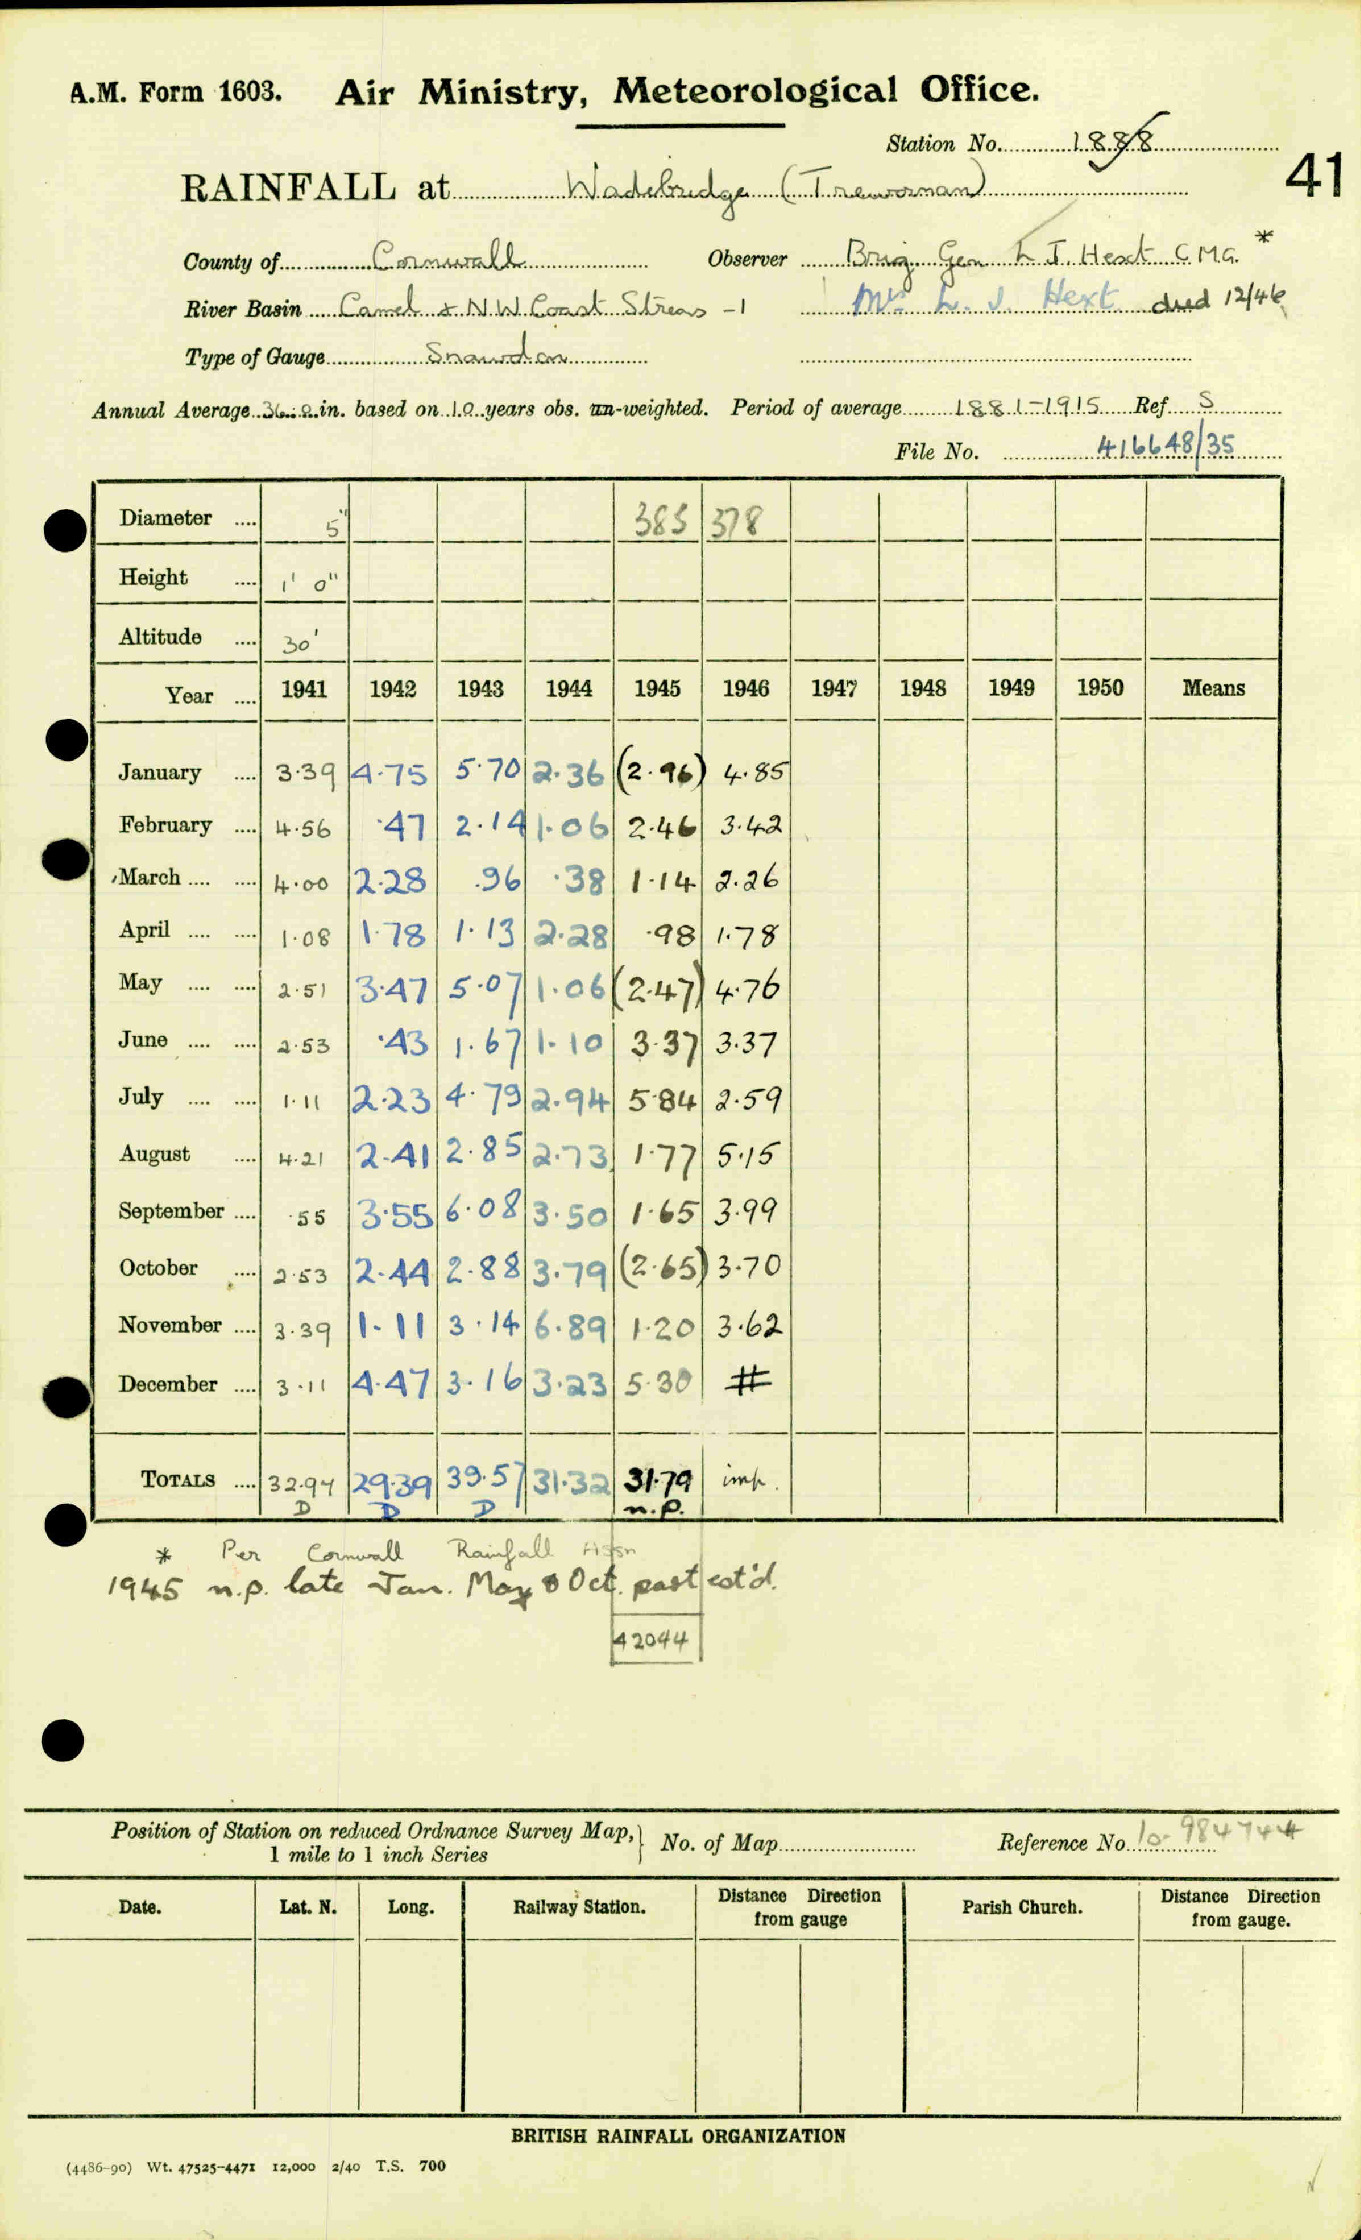 A.M. Form 1603. Air Ministry, Meteorological Office.
Station No. 1888
41
RAINFALL at Wadebridge (Treworman)
County of Cornwall Observer Brig Gen L J. Hext C.M.G. *
River Basin Camel & N W Coast Streas -1 Mr. L. J. Hext died 12/46
Type of Gauge Snowdon
Annual Average 36.0 in. based on 10 years obs. un-weighted. Period of average 1881-1915 Ref S
File No. 416648/35
Diameter .... 5" 385 378
Height .... 1' 0"
Altitude .... 30'
Year .... 1941 1942 1943 1944 1945 1946 1947 1948 1949 1950 Means
January .... 3.39 4.75 5.70 2.36 (2.96) 4.85
February .... 4.56 .47 2.14 1.06 2.46 3.42
March .... .... 4.00 2.28 .96 .38 1.14 2.26
April .... .... 1.08 1.78 1.13 2.28 .98 1.78
May .... .... 2.51 3.47 5.07 1.06 (2.47) 4.76
June .... .... 2.53 .43 1.67 1.10 3.37 3.37
July .... .... 1.11 2.23 4.79 2.94 5.84 2.59
August .... 4.21 2.41 2.85 2.73 1.77 5.15
September .... .55 3.55 6.08 3.50 1.65 3.99
October .... 2.53 2.44 2.88 3.79 (2.65) 3.70
November .... 3.39 1.11 3.14 6.89 1.20 3.62
December .... 3.11 4.47 3.16 3.23 5.30 #
TOTALS .... 32.97 29.39 39.57 31.32 31.79 imp.
D D D n.p.
* Per Cornwall Rainfall Assn
1945 n.p. late Jan. May & Oct. past est'd.
42044
Position of Station on reduced Ordnance Survey Map, } No. of Map Reference No. 10- 984744
1 mile to 1 inch Series
Date. Lat. N. Long. Railway Station. Distance Direction from gauge Parish Church. Distance Direction from gauge.
BRITISH RAINFALL ORGANIZATION
(4486-90) Wt. 47525-4471 12,000 2/40 T.S. 700